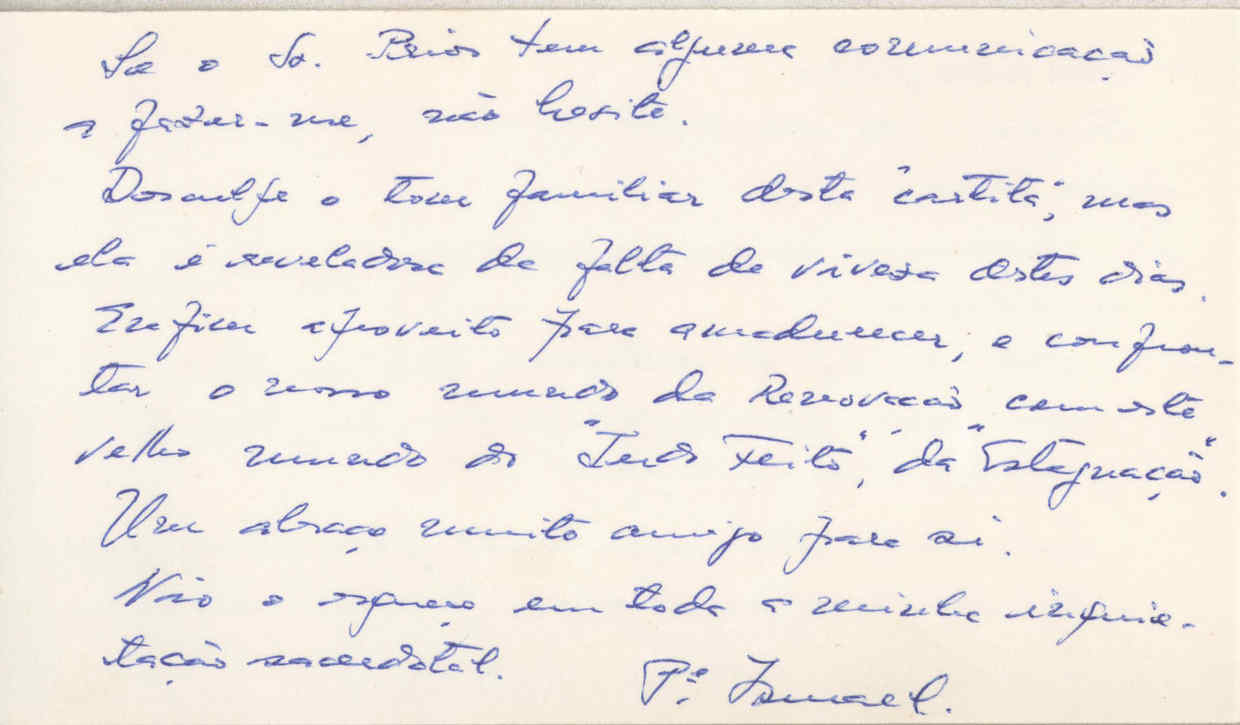 Se o Sr. Prior tem alguma comunicação
a fazer-me, não hesite.
Desculpe o tom familiar desta "cartita", mas
ela é reveladora da falta de viveza destes dias.
Enfim aproveito para amadurecer, e confron-
tar o nosso mundo da Renovação, com este
velho mundo do "Tudo Feito", da "Estagnação".
Um abraço muito amigo para si.
Não o esqueço em toda a minha inquie-
tação sacerdotal.
Pe. Ismael.